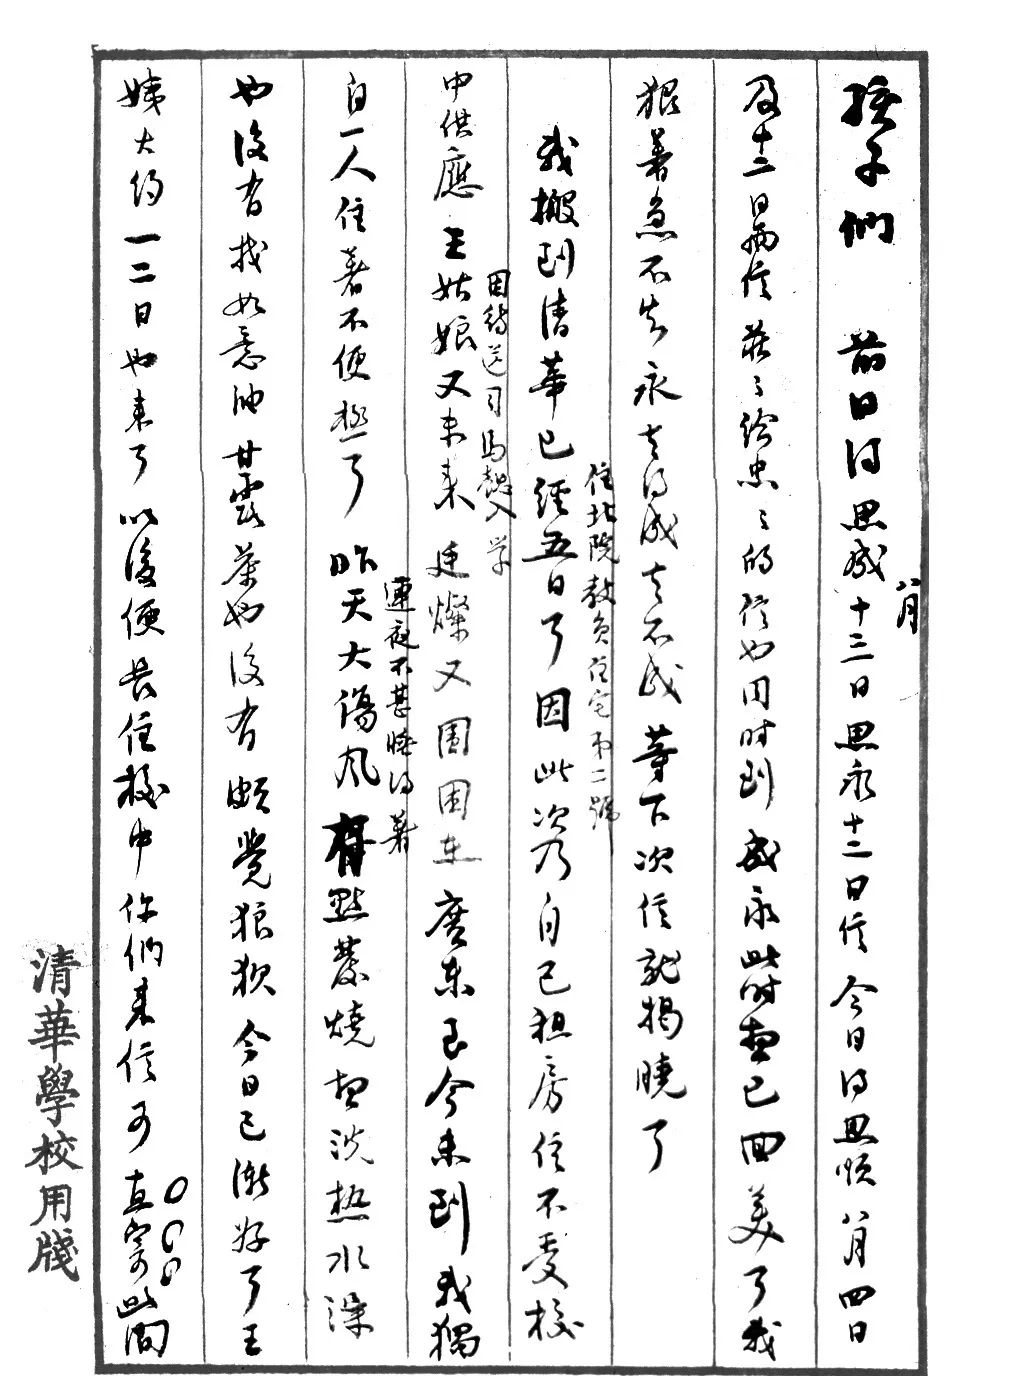 孩子們　前日得思成八月十三日思永十二日信今日得思順八月四日
及十二日兩信莊莊給忠忠的信也同時到成永此時想已回美了我
狠著急不知永去得成去不成等下次信就揭曉了
我搬到清華已經五日了因此次乃自己租房住不受校
住北院教員住宅第二號
中供應王姑娘又未來廷燦又圍困在廣東至今未到我獨
因待送司馬懿入學
自一人住著不便極了　昨天大傷風有點發燒想洗熱水澡
連夜不甚睡得著
也沒有找如意油甘露茶也沒有頗覺狼狽今日已漸好了王
姨大約一二日也來了以後便長住校中你們來信可直寄此間
清華學校用牋